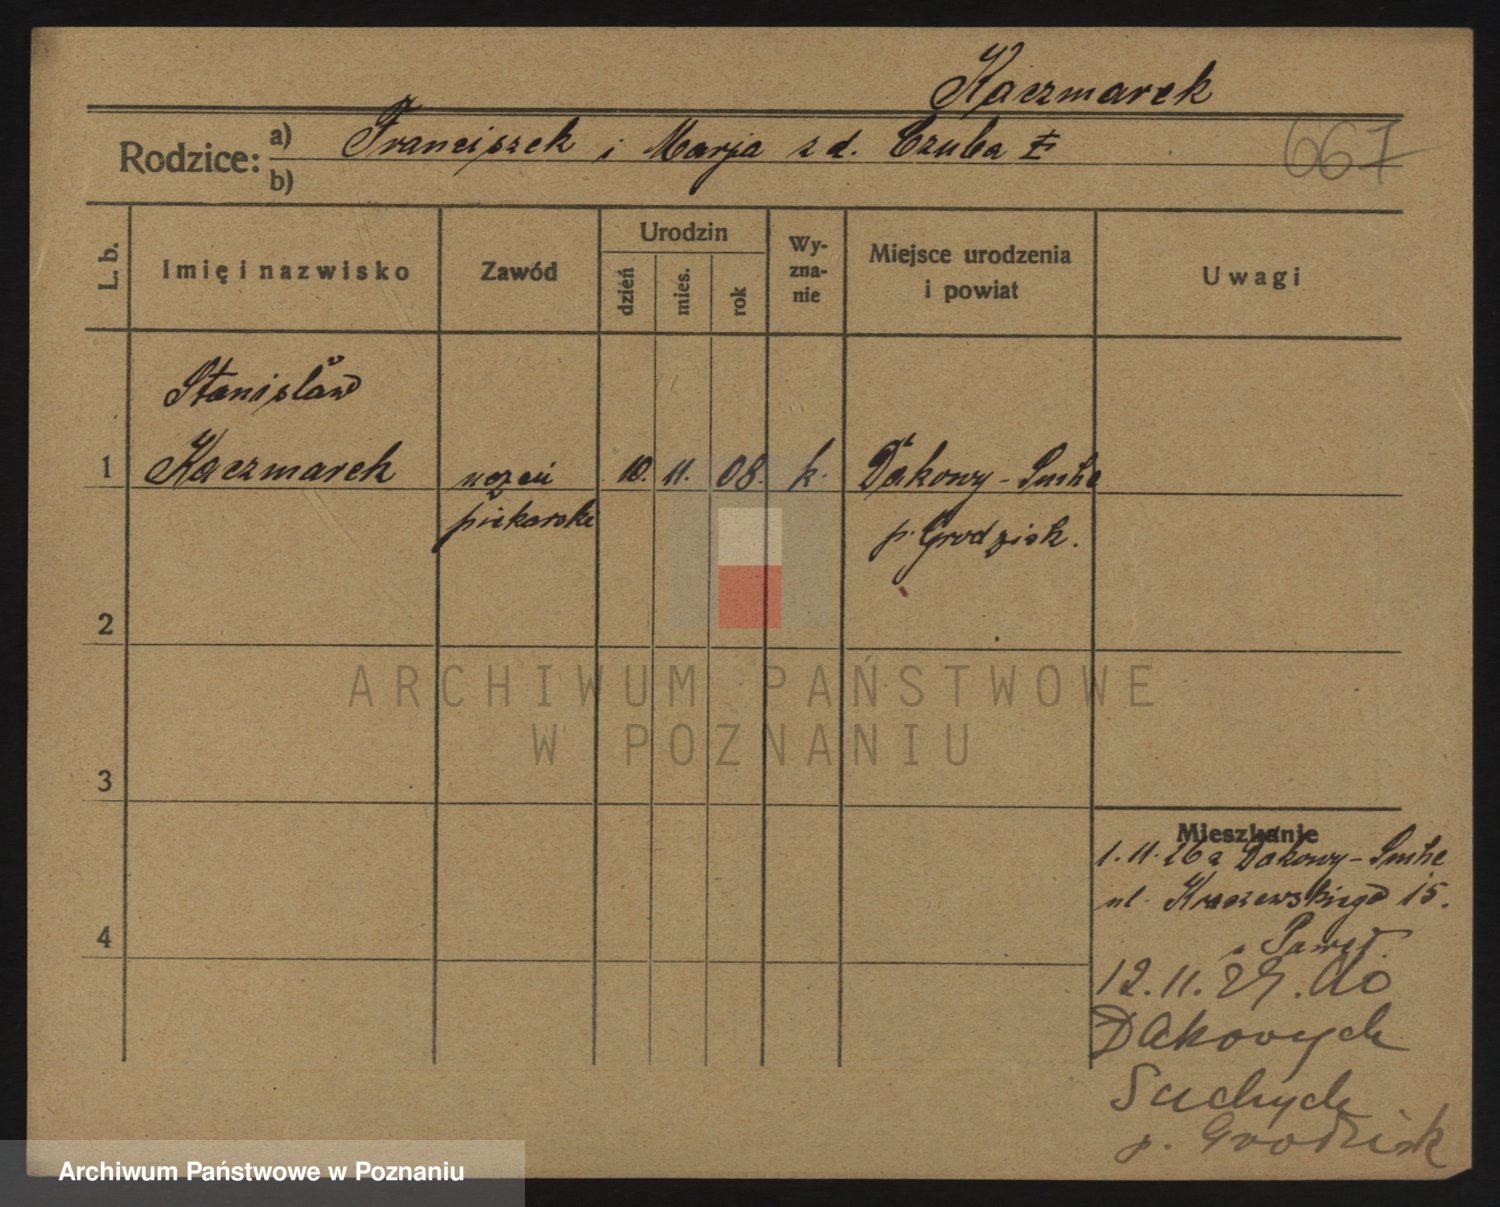 Kaczmarek
Rodzice: a) Franciszek i Marja z d. Czuba
b)
667
L. b.
Imię i nazwisko
Zawód
Urodzin
dzień
mies.
rok
Wy-
zna-
nie
Miejsce urodzenia
i powiat
Uwagi
Stanisław
1 Kaczmarek uczeń 10. 11. 08. k. Dakowy-Suche
piekarski p. Grodzisk.
2
3
4
ARCHIWUM PAŃSTWOWE
W POZNANIU
Mieszkanie
1. 11. 26 z Dakowy-Suche
ul. Kraszewskiego 15.
12. 11. 27. do
Dakowych
Suchych
p. Grodzisk
Archiwum Państwowe w Poznaniu